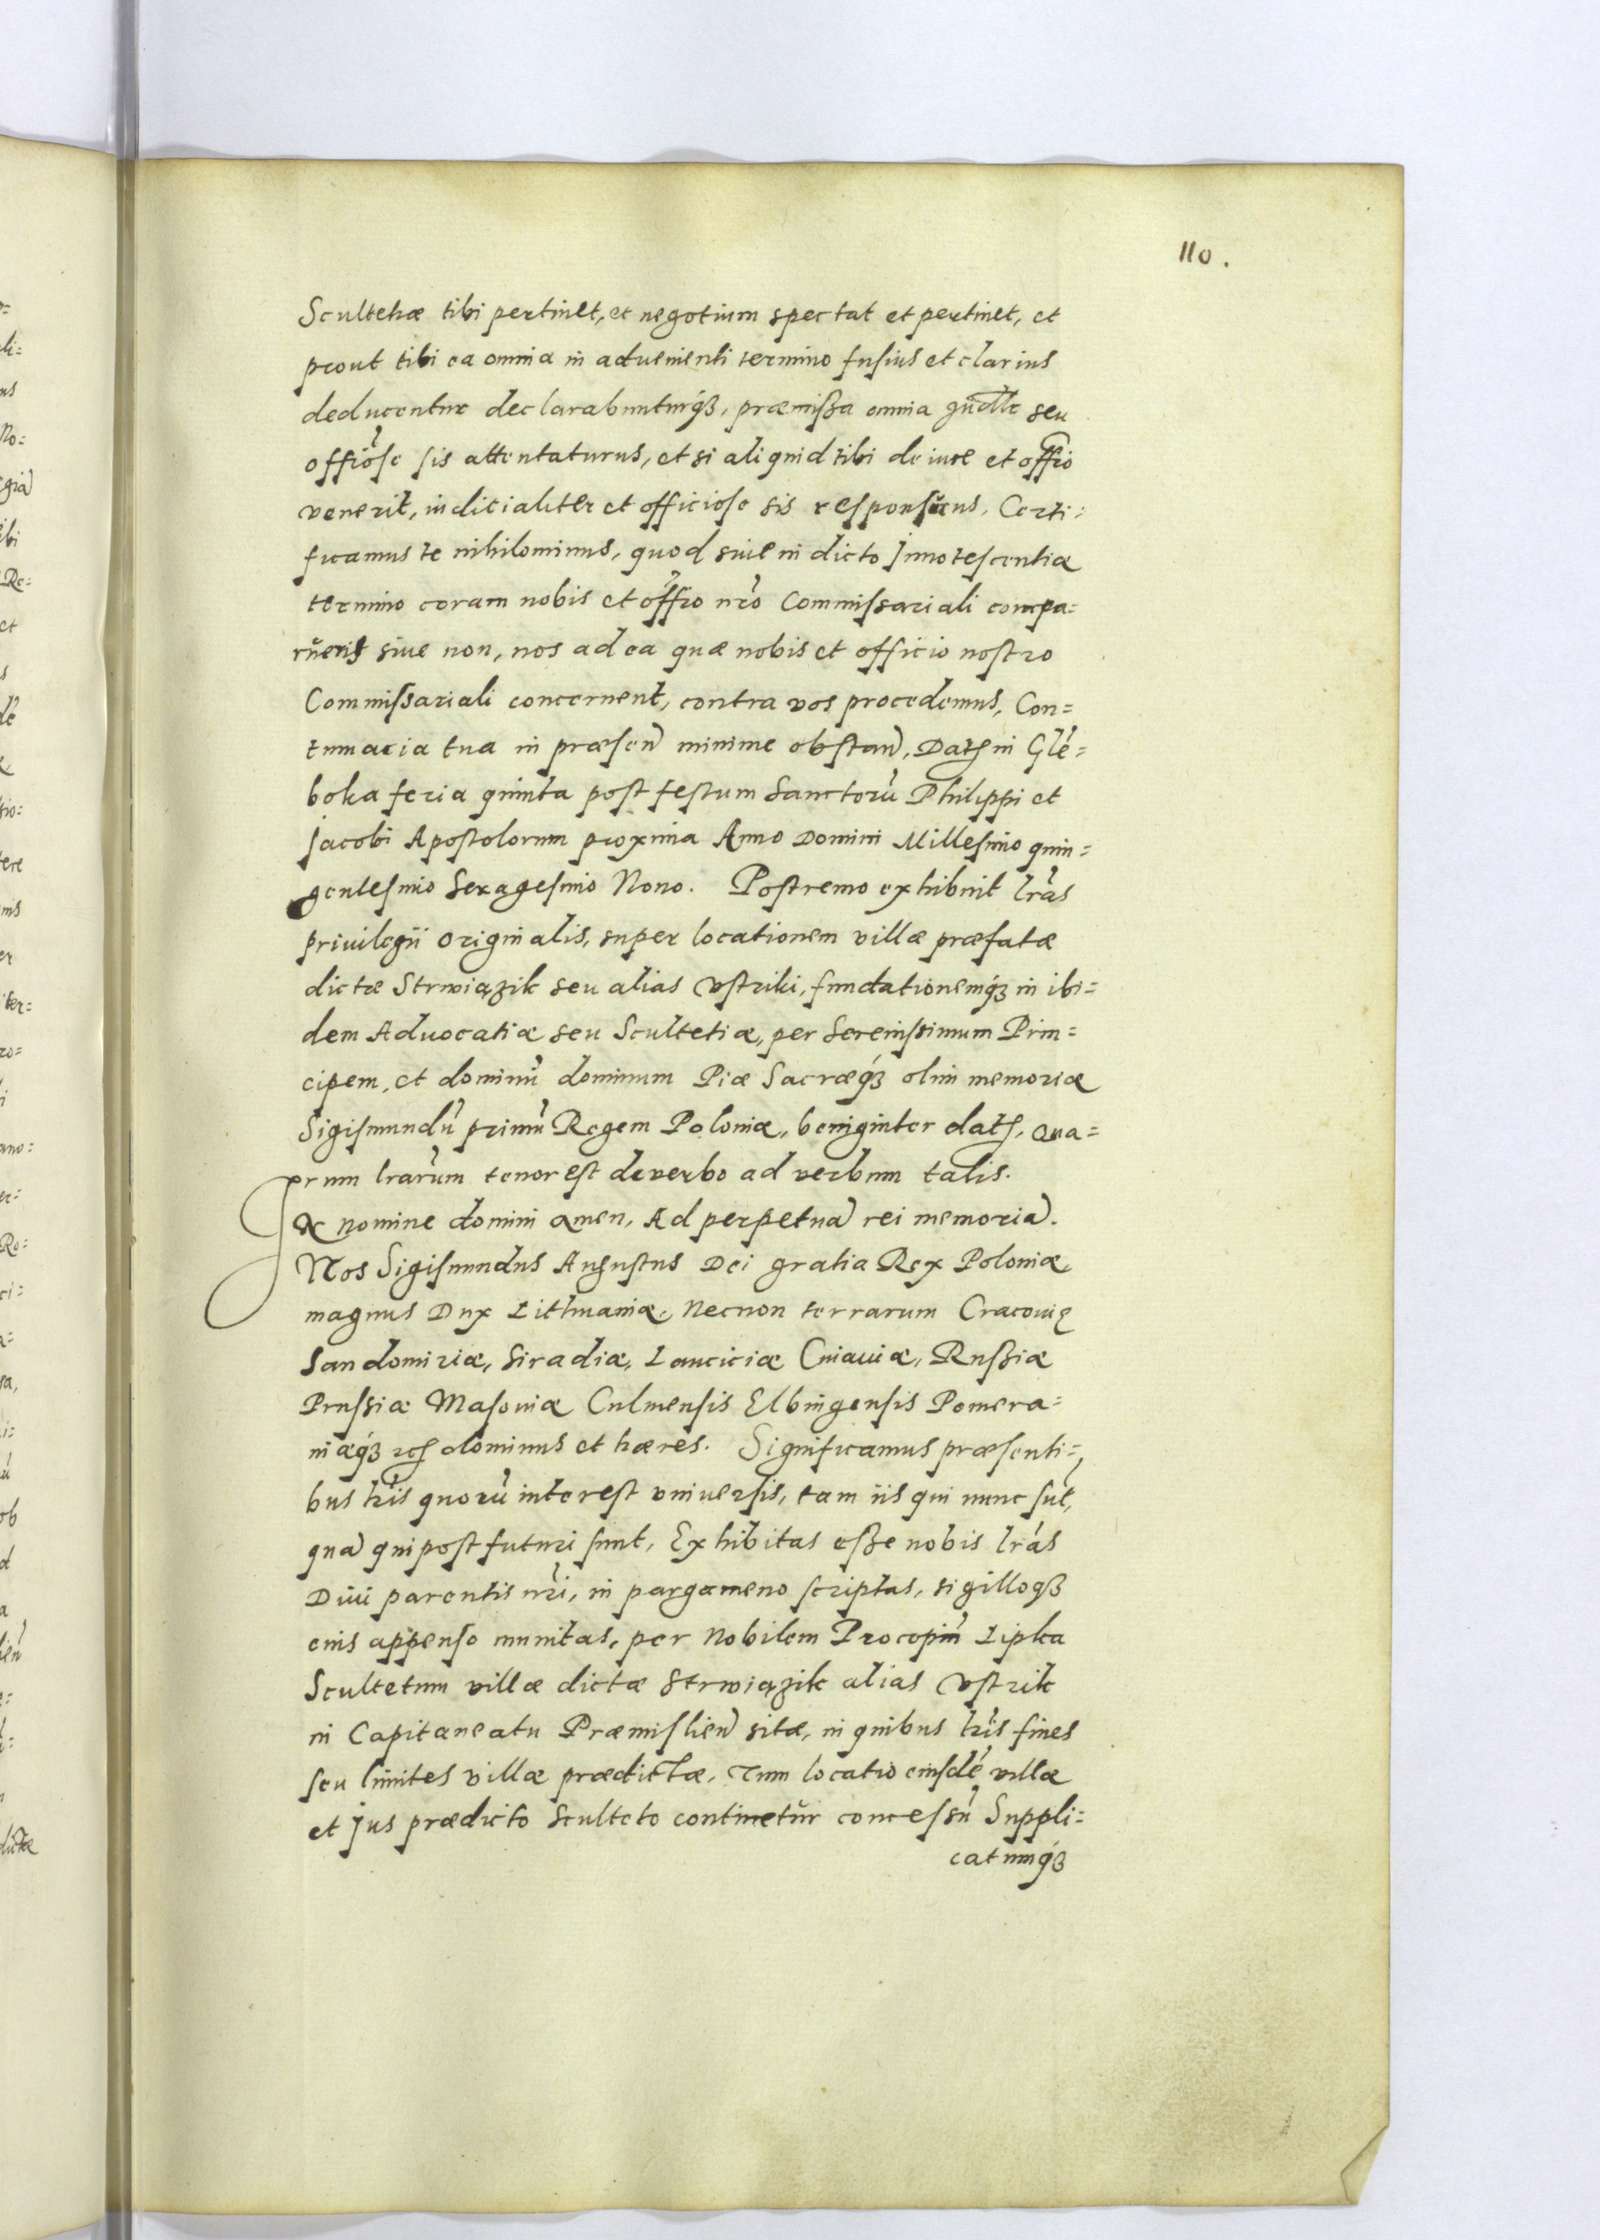 110.
Scultetiæ tibi pertinet, et negotium spectat et pertinet, et
prout tibi ea omnia in advenienti termino fusius et clarius
deducentur declarabunturq́ʒ, præmissa omnia seu
offiōse sis attentaturus, et si aliquid tibi de iure et offio
venerit, iudicialiter et officiose sis responsurus, Certi=
ficamus te nihilominus, quod siue in dicto Innotescentiæ
termino coram nobis et offio nr̄o Commissariali compa=
rueris siue non, nos ad ea quæ nobis et officio nostro
Commissariali concernent, contra vos procedemus, Con=
tumacia tua in præsen̄ minime obstan̄, Datʒ in Glé=
boka feria quinta post festum Sanctorū Philippi et
Jacobi Apostolorum proxima Anno Domini Millesimo quin=
gentesimo Sexagesimo Nono. Postremo exhibuit lr̄as
priuilegii originalis, super locationem villæ præfatæ
dictæ Strwiązik seu alias Vstriki, fundationemq́ʒ in ibi=
dem Aduocatiæ seu Scultetiæ, per Serenissimum Prin=
cipem, et dominū dominum Piæ Sacræq́ʒ olim memoriæ
Sigismundū primū Regem Poloniæ, benigniter datʒ, qua=
rum lr̄arum tenor est de verbo ad verbum talis.
In nomine domini amen, Ad perpetuā rei memoriā.
Nos Sigismundus Augustus Dei gratia Rex Poloniæ,
magnus Dux Lithuaniæ, Necnon terrarum Cracouię
Sandomiriæ, Siradiæ, Lanciciæ Cuiauiæ, Russiæ
Prussiæ Masouiæ Culmensis Elbingensis Pomera=
niæq́ʒ ꝛcʒ dominus et hæres. Significamus præsenti=
bus lr̄is quorū interest vniuersis, tam iis qui nunc sūt,
quā qui post futuri sunt, Exhibitas esse nobis lr̄as
Diui parentis nr̄i, in pargameno scriptas, sigilloqʒ
eius appenso munitas, per Nobilem Procopiū Lipka
Scultetum villæ dictæ Strwiązik alias Vstrik
in Capitaneatu Præmislien̄ sitæ, in quibus lr̄is fines
seu limites villæ prædictæ, Tum locatio eiusdē villæ
et Jus prædicto Sculteto continetur concessū Suppli=
catumq́ʒ